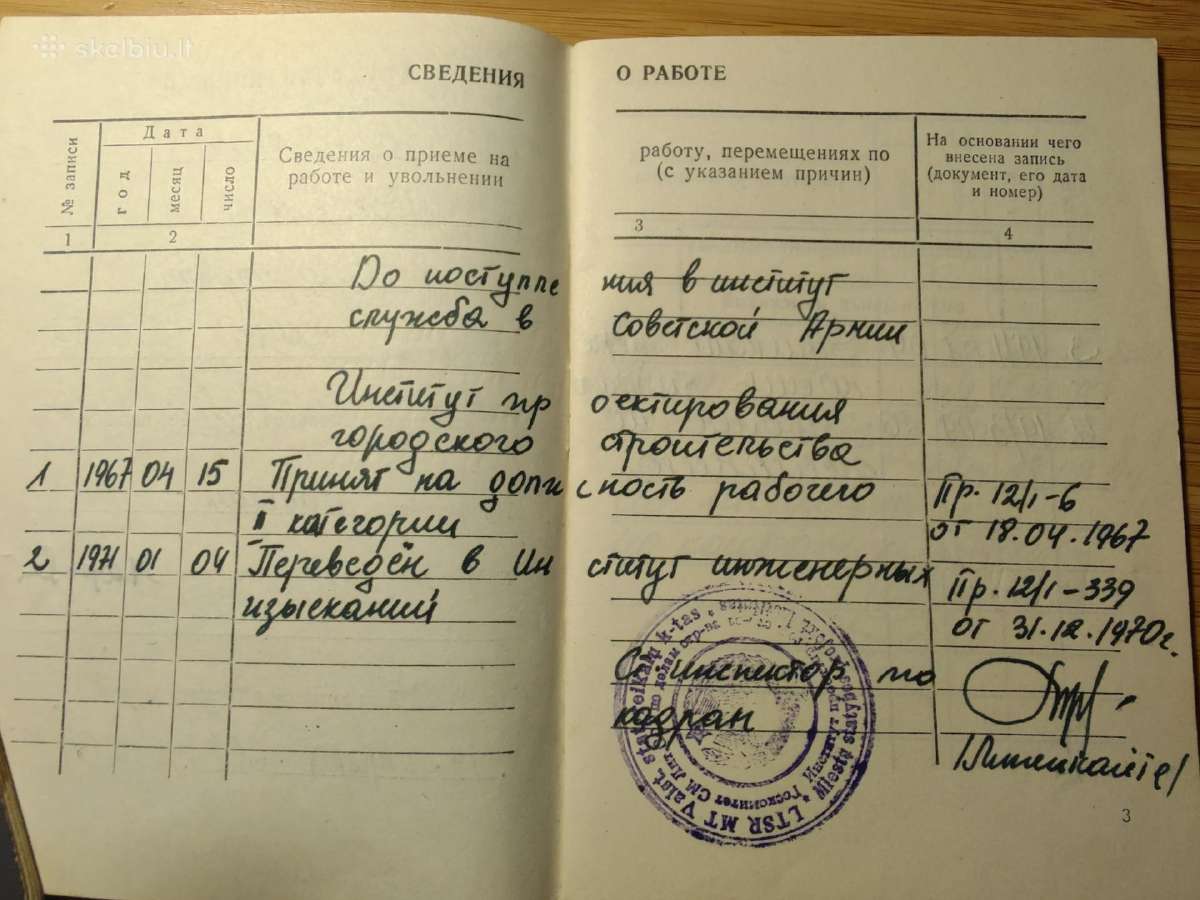 skelbiu.lt
СВЕДЕНИЯ О РАБОТЕ
№ записи
Дата
год
месяц
число
Сведения о приеме на
работе и увольнении
работу, перемещениях по
(с указанием причин)
На основании чего
внесена запись
(документ, его дата
и номер)
1 2 3 4
До поступления в институт
служба в Советской Армии
Институт проектирования
городского строительства
1 1967 04 15 Принят на должность рабочего Пр. 12/1-6
II категории от 18.04.1967
2 1971 01 04 Переведён в Институт инженерных Пр. 12/1-339
изысканий от 31.12.1970г.
Ст инспектор по
кадрам
LTSR MT Valst. statybos reikalų k-tas
Miestų statybos projekt.
Госкомитет СМ Лит
по делам стр-ва
3